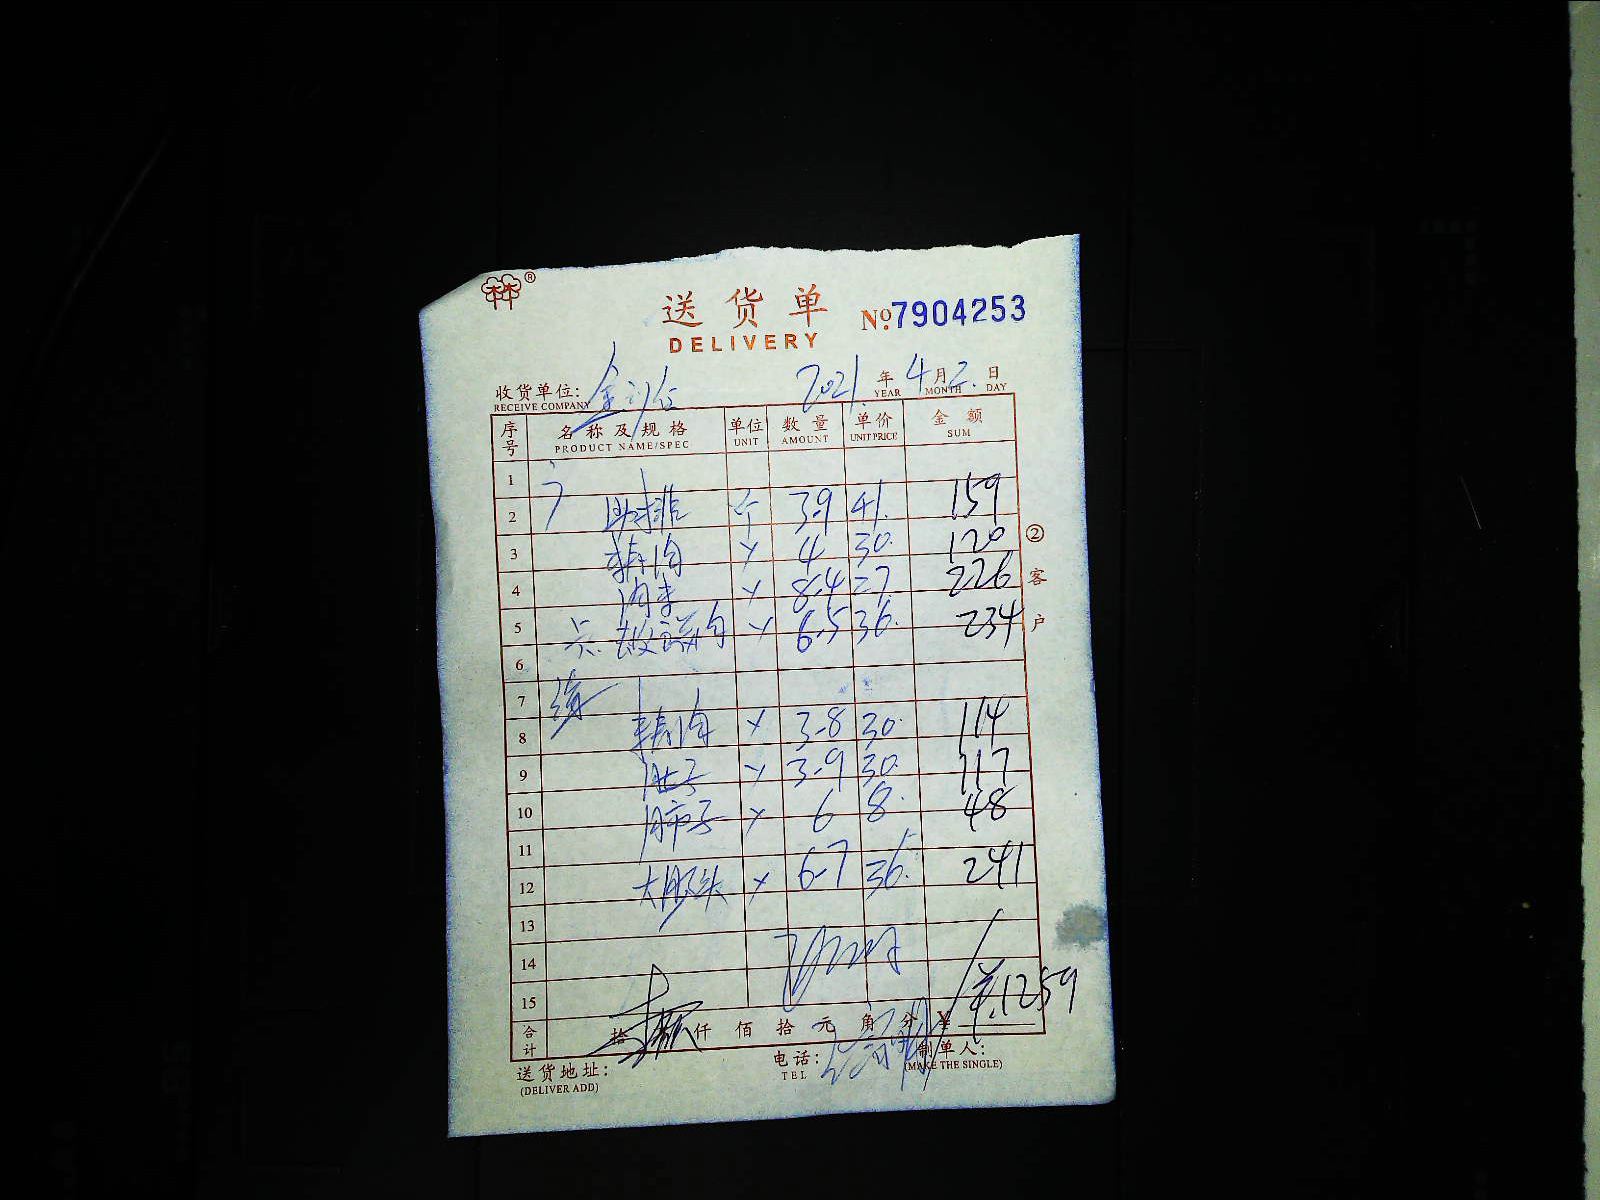 林®
送货单 No:7904253
DELIVERY
收货单位: 2021年4月2日
RECEIVE COMPANY YEAR MONTH DAY
序号 名称及规格 单位 数量 单价 金额
PRODUCT NAME/SPEC UNIT AMOUNT UNIT PRICE SUM
1
2 助排 个 3.9 41. 159
3 精肉 4 30. 120 ②
4 肉末 8.4 27 226 客
5 6.5 36. 234 户
6
7
8 精肉 3.8 30. 114
9 肚子 3.9 30. 117
10 肺子 6 8. 48
11
12 大肠头 6.7 36. 241
13
14
15 ¥.1259
合计 拾 仟 佰 拾 元 角 分 ¥
送货地址: 电话: 制单人:
(DELIVER ADD) TEL (MAKE THE SINGLE)